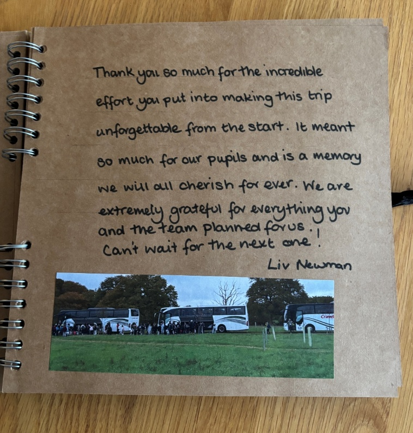 Thank you so much for the incredible
effort you put into making this trip
unforgettable from the start. It meant
so much for our pupils and is a memory
we will all cherish for ever. We are
extremely grateful for everything you
and the team planned for us!
Can't wait for the next one!
Liv Newman